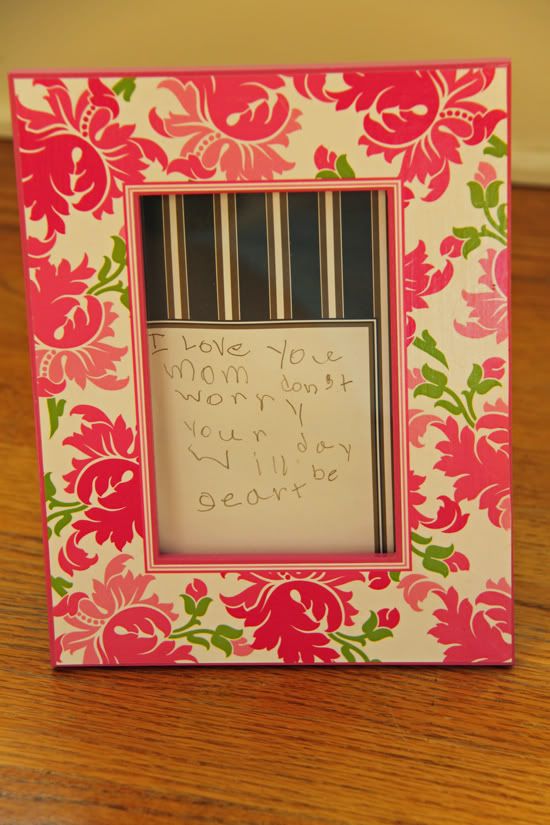 I Love you
mom don't
worry
your day
will be
geart